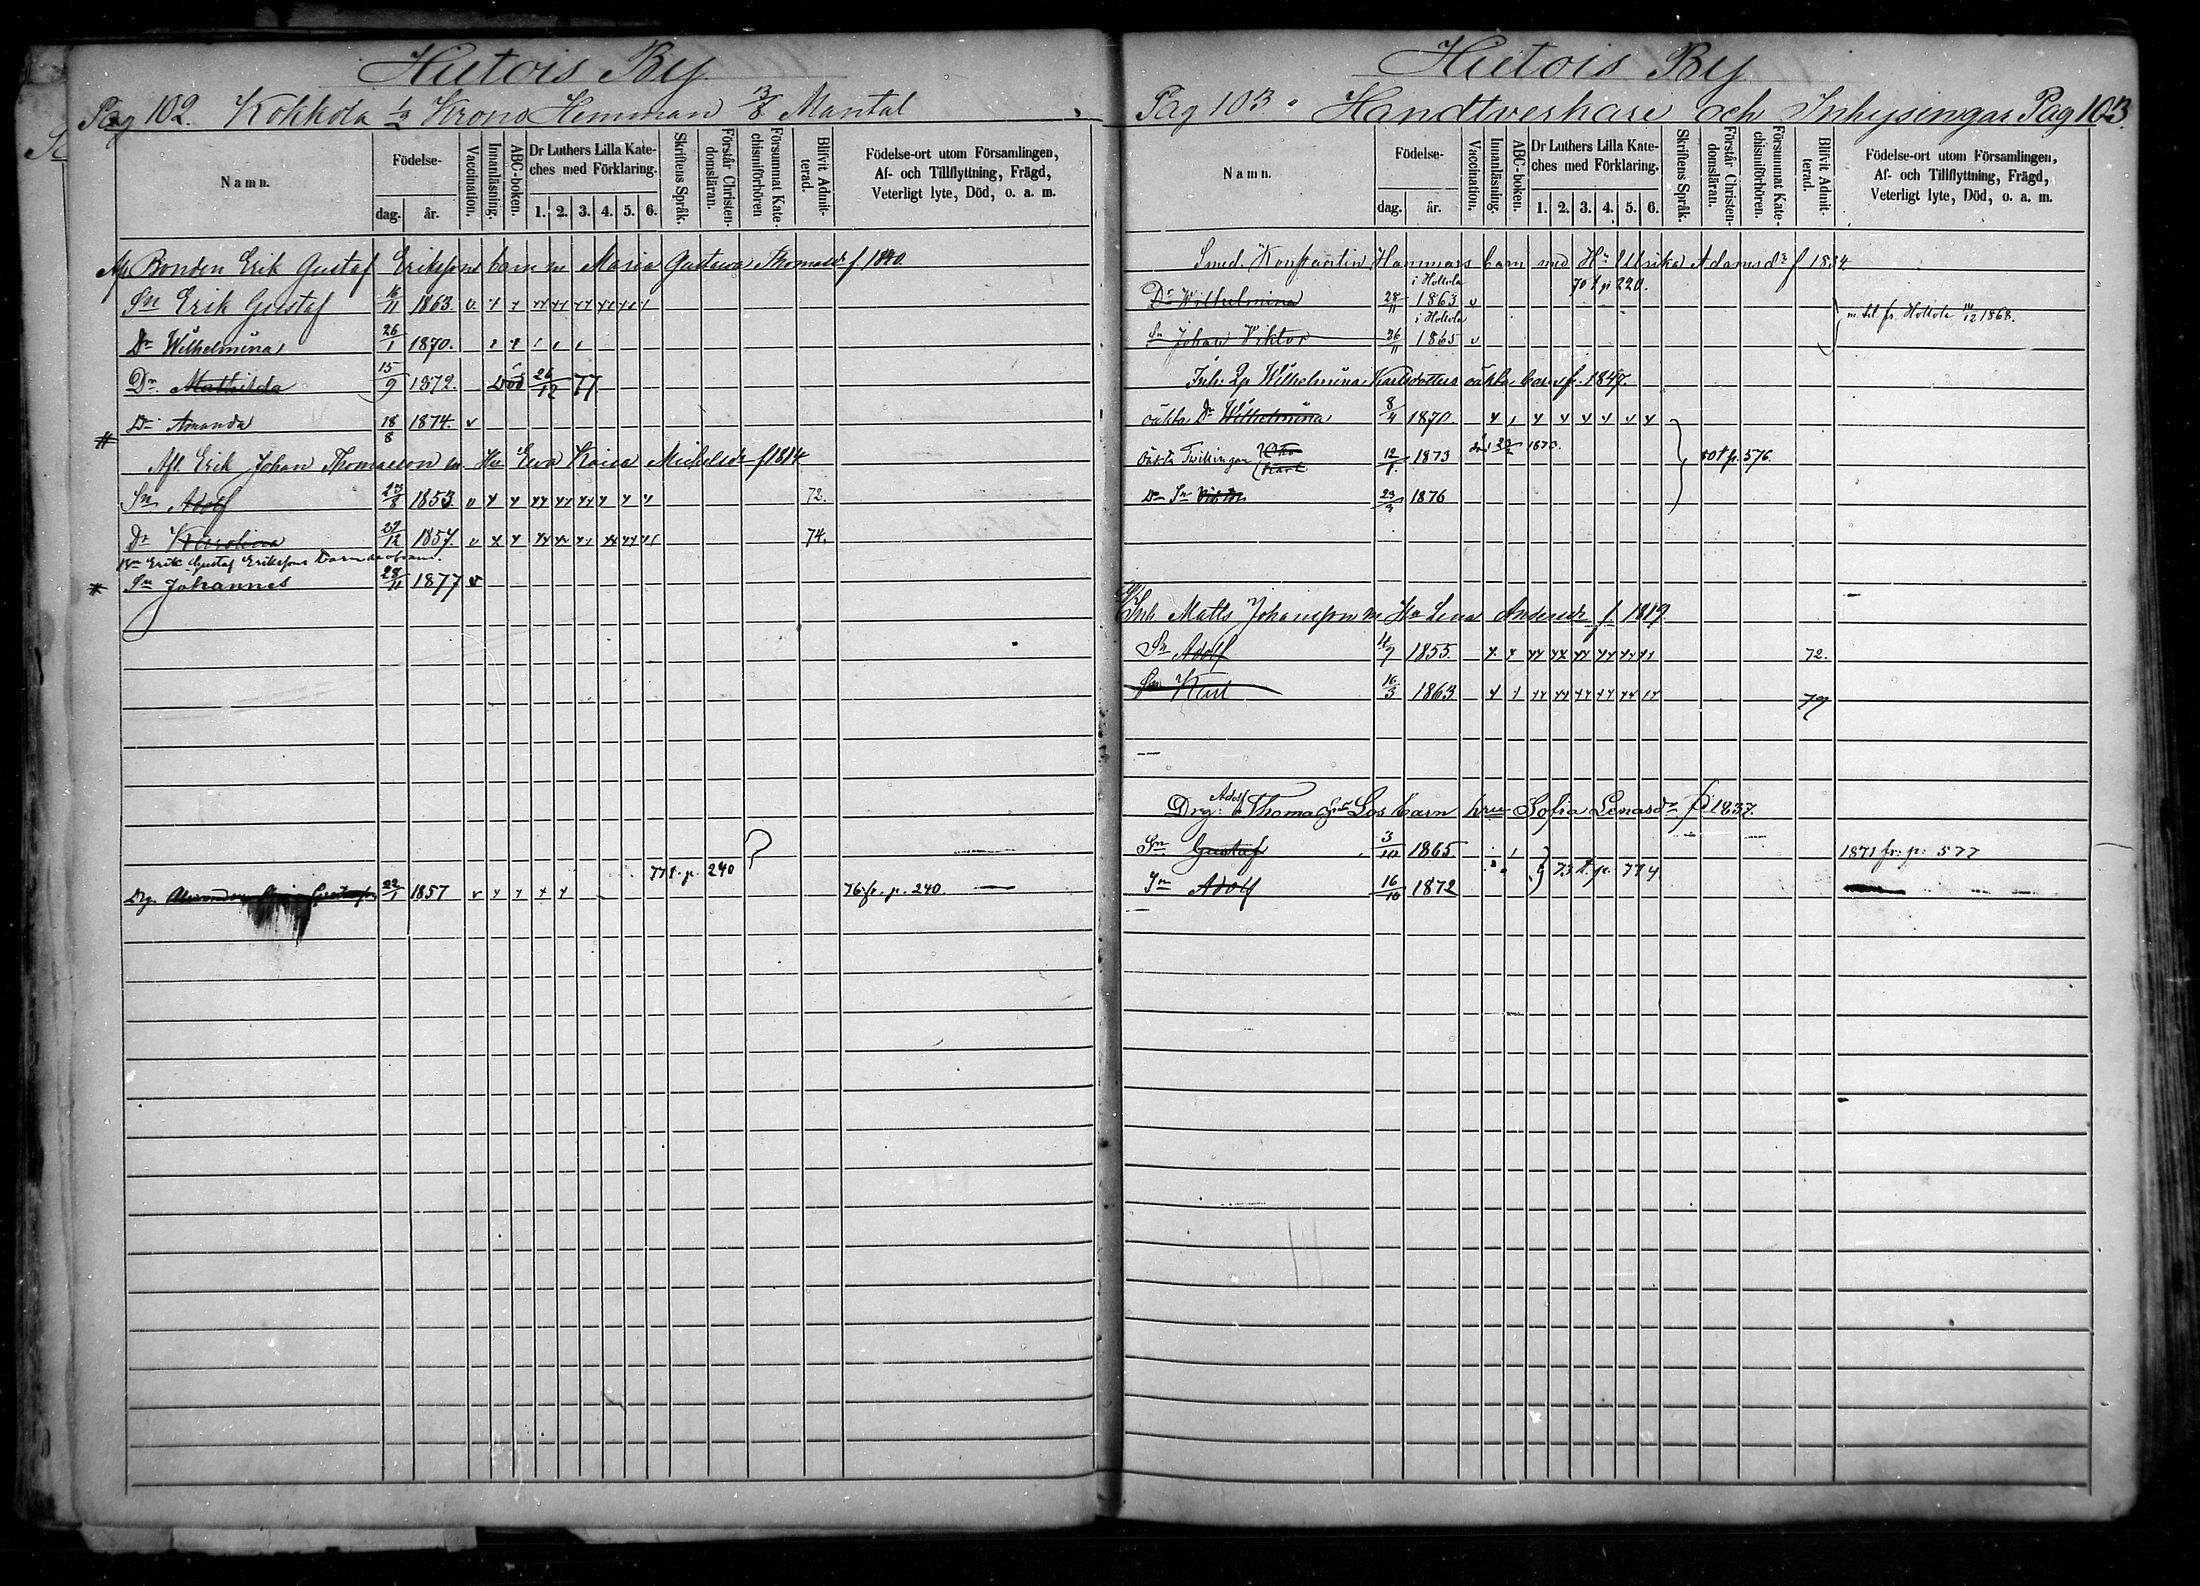 Hietois By
Pag 102. Kokkola 1/2 Krono Hemman 13/8 Mantal
Namn. Födelse- dag. år. Vaccination. Innanläsning. ABC-boken. Dr Luthers Lilla Kate-ches med Förklaring. 1. 2. 3. 4. 5. 6. Skriftens Språk. Förstår Christen-domsläran. Försummat Kate-chismiförhören Blifvit Admit-terad. Födelse-ort utom Församlingen, Af- och Tillflyttning, Frägd, Veterligt lyte, Död, o. a. m.
Bonden Erik Gustaf Erikssons barn m Maria Gustava Thomasdr f 1840.
Sn Erik Gustaf 16/11 1863. v
Dr Wilhelmina 26/1 1870.
Dr Mathilda 15/9 1872. Död 26/12 77
Dr Amanda 18/8 1874. v
Afl. Erik Johan Thomasson m Hu Eva Kaisa Michelsdr f 1814
Sn Adolf 23/8 1853. v 72.
Dr Karolina 27/12 1857. v 74.
Bn Erik Gustaf Erikssons Barn
Sn Johannes 28/11 1877 v
77 t. p. 240
Drg. 22/1 1857 v 76 fr. p. 240.
Hietois By
Pag 103. Handtverkare och Inhysingar Pag 103.
Namn. Födelse- dag. år. Vaccination. Innanläsning. ABC-boken. Dr Luthers Lilla Kate-ches med Förklaring. 1. 2. 3. 4. 5. 6. Skriftens Språk. Förstår Christen-domsläran. Försummat Kate-chismiförhören. Blifvit Admit-terad. Födelse-ort utom Församlingen, Af- och Tillflyttning, Frägd, Veterligt lyte, Död, o. a. m.
Smed. Konstantin Hammars barn med Hu Ulrika Adamsdr f 1834
i Hollola 70 t p 220.
Dr Wilhelmina 28/11 1863 v
i Hollola m. bet. fr. Hollola 14/12 1868.
Sn Johan Viktor 26/11 1865 v
Inh. Qp Wilhelmina Karlsdotters oäkta barn f. 1847.
oäkta Dr Wilhelmina 8/4 1870.
oäkta Twillingar Otto Karl 12/8 1873 1873. 80 t p. 576.
Do Sn Viktor 23/3 1876
Inh. Matts Johansson m Hu Lena Andersdr f 1819.
Sn Adolf 4/7 1855. 72.
Sn Karl 16/3 1863 79
Drg: Adolf Thomasson Los barn hru Sofia Lenasdr f 1837.
Sn Gustaf 3/10 1865. 1871 fr: p: 577
73 t. p. 774
Sn Adolf 16/10 1872